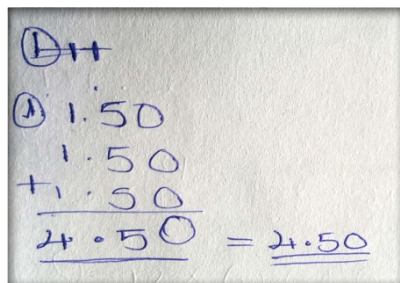 ① 1.50
1.50
+1.50
4.50 = 4.50